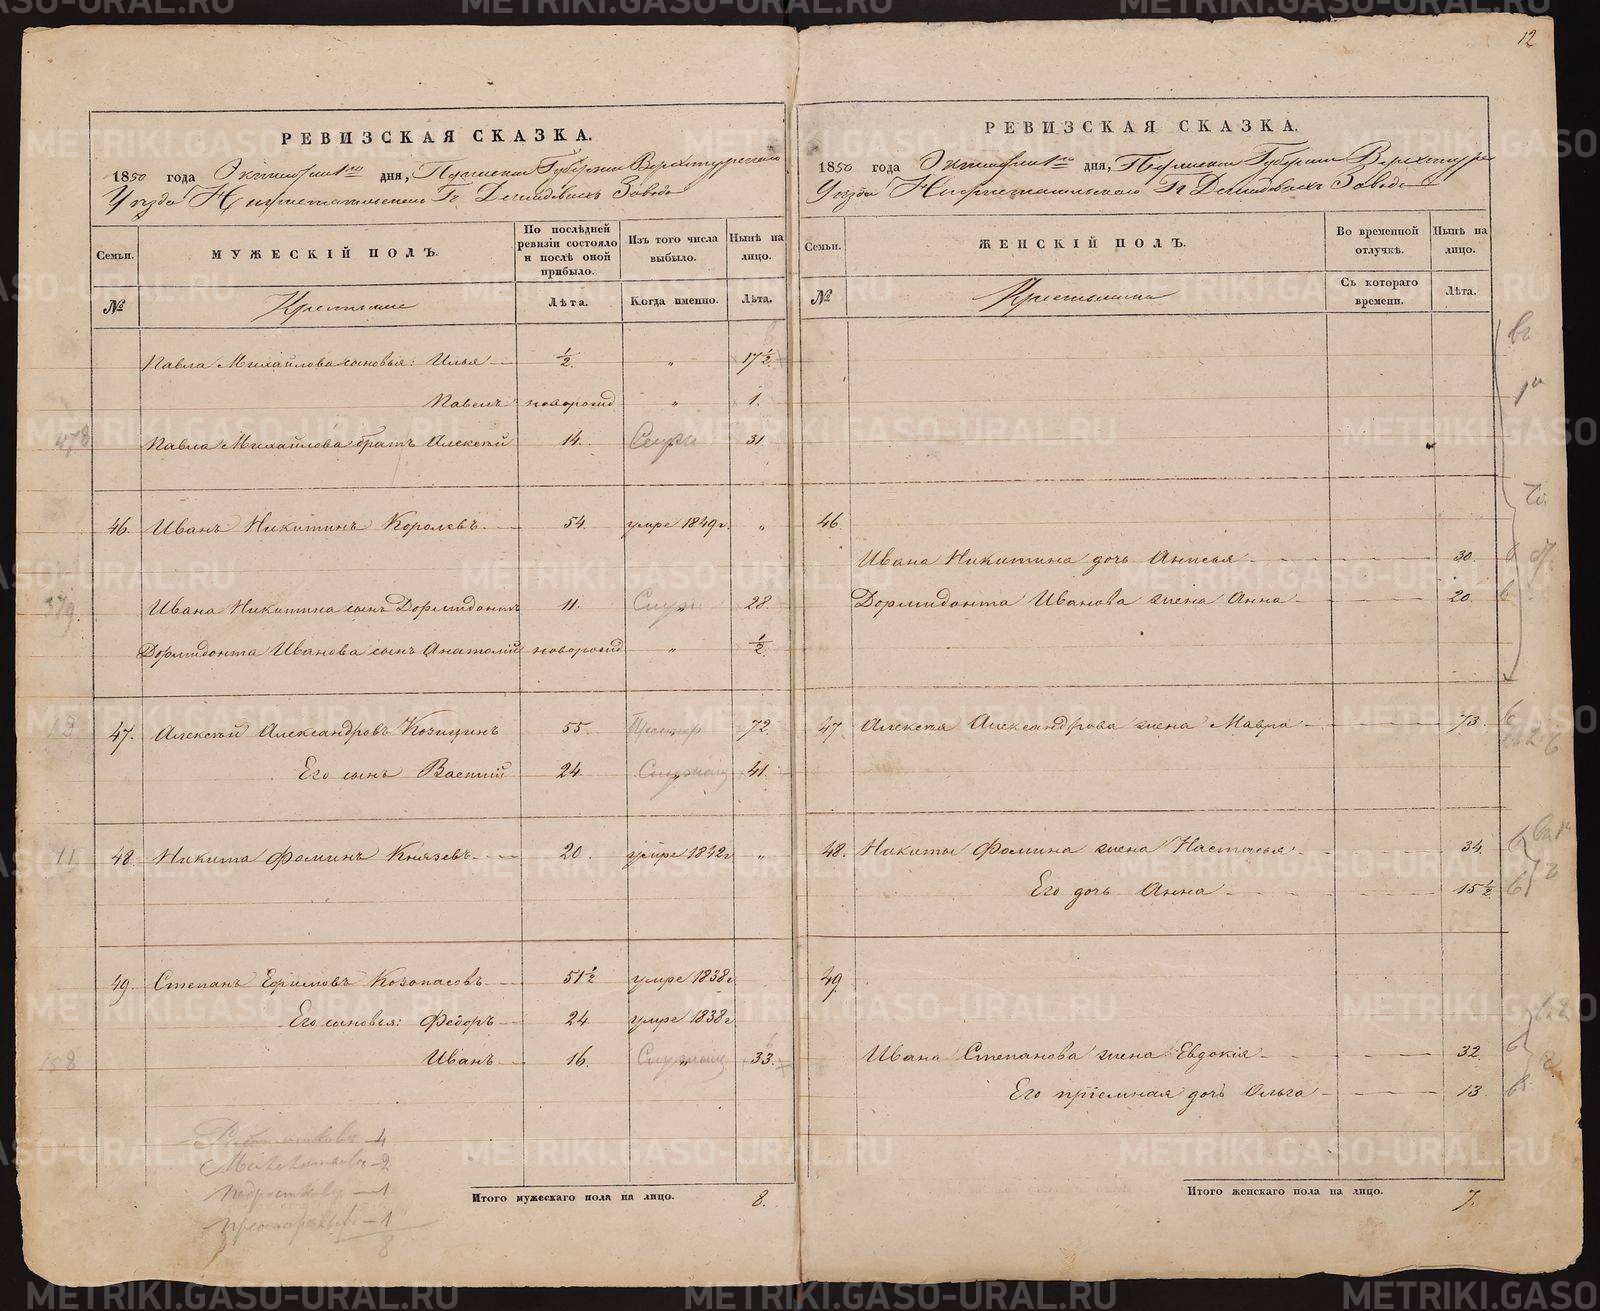 12
РЕВИЗСКАЯ СКАЗКА.
1850 года Октября 1го дня, Пермской Губернии Верхотурскаго
Уезда Нижнетагильскаго Гг. Демидовыхъ Завода
Семьи.
МУЖЕСКІЙ ПОЛЪ.
По послѣдней ревизіи состояло и послѣ оной прибыло.
Изъ того числа выбыло.
Нынѣ на лицо.
№
Крестьяне
Лѣта.
Когда именно.
Лѣта.
Павла Михайлова сыновья: Илья ½. " 17½
Павелъ новорожд " 1.
Павла Михайлова братъ Алексѣй 14. 31.
46. Иванъ Никитинъ Королевъ 54. умре 1849г. "
Ивана Никитина сынъ Дормидонтъ 11. " 28
Дормидонта Иванова сынъ Анатолій новорожд " ½
47. Алексѣй Александровъ Козицинъ 55. 72.
Его сынъ Василій 24. " 41.
48. Никита Фоминъ Князевъ 20. умре 1842г "
49. Степанъ Ефимовъ Козопасовъ 51½ умре 1838г
Его сыновья: Федоръ 24. умре 1838г
Иванъ 16. " 33.
— 4
— 2
— 1
— 1
8
Итого мужескаго пола на лицо. 8.
РЕВИЗСКАЯ СКАЗКА.
1850 года Октября 1го дня, Пермской Губерніи Верхотурс
Уезда Нижнетагильскаго Гг Демидовыхъ Завода
Семьи.
ЖЕНСКІЙ ПОЛЪ.
Во временной отлучкѣ.
Нынѣ на лицо.
№
Крестьянки
Съ котораго времени.
Лѣта.
46.
Ивана Никитина дочь Анисья 30.
Дормидонта Иванова жена Анна 20.
47 Алексѣя Александрова жена Мавра 73.
48. Никиты Фомина жена Настасья 34.
Его дочь Анна 15½
49.
Ивана Степанова жена Евдокія 32.
Его пріемная дочь Ольга 13.
Итого женскаго пола на лицо. 7.
METRIKI.GASO-URAL.RU